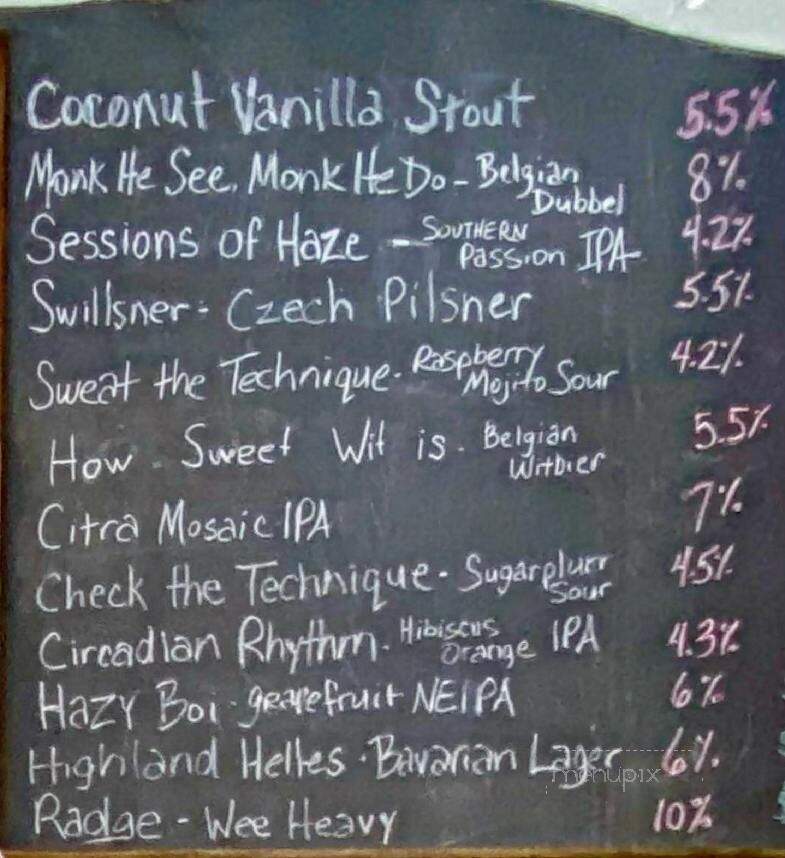 Coconut Vanilla Stout 5.5%
Monk He See, Monk He Do - Belgian Dubbel 8%
Sessions of Haze - SOUTHERN Passion IPA 4.2%
Swillsner - Czech Pilsner 5.5%
Sweat the Technique - Raspberry Mojito Sour 4.2%
How Sweet Wit is - Belgian Witbier 5.5%
Citra Mosaic IPA 7%
Check the Technique - Sugarplum Sour 4.5%
Circadian Rhythm - Hibiscus Orange IPA 4.3%
Hazy Boi - grapefruit NEIPA 6%
Highland Helles - Bavarian Lager 6%
menupix
Radge - Wee Heavy 10%